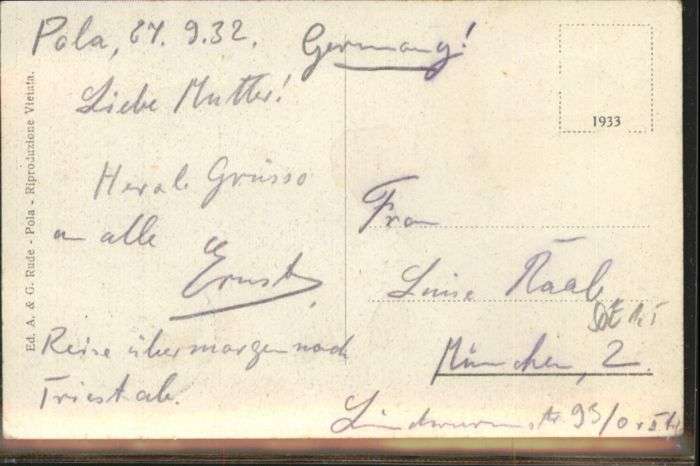 Pola, 27. 9. 32.
Germany!
Liebe Mutter!
Herzl. Grüsse
an alle
Ernst
Reise übermorgen nach
Triest ab.
Frau
Luise Raab
München, 2.
Lindwurmstr. 93/0
1933
Ed. A. & G. Rude - Pola - Riproduzione Vietata.